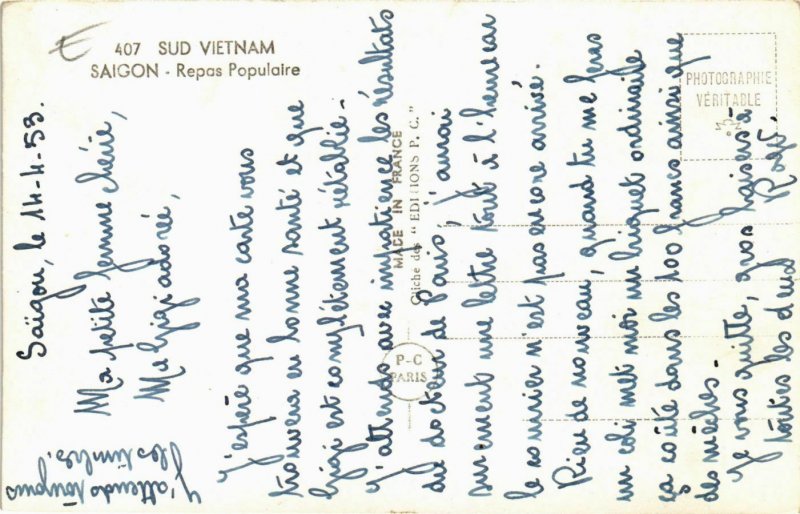 407 SUD VIETNAM
SAIGON - Repas Populaire
PHOTOGRAPHIE
VÉRITABLE
MADE IN FRANCE
Cliché des "EDITIONS P. C."
P-C
PARIS
Saïgon, le 14-4-53.
Ma petite femme chérie,
Ma Gigi adorée,
J'espère que ma carte vous
trouvera en bonne santé et que
Gigi est complétement rétablie-
J'attends avec impatience les résultats
du docteur de Paris, j'aurai
surement une lettre tout à l'heure car
le courrier n'est pas encore arrivé.
Rien de nouveau, quand tu me feras
un coli met moi un briquet ordinaire
ça coûte dans les 100 francs ainsi que
des mèches-
Je vous quitte, gros baisers à
toutes les deux
J'attends toujours
les timbres.